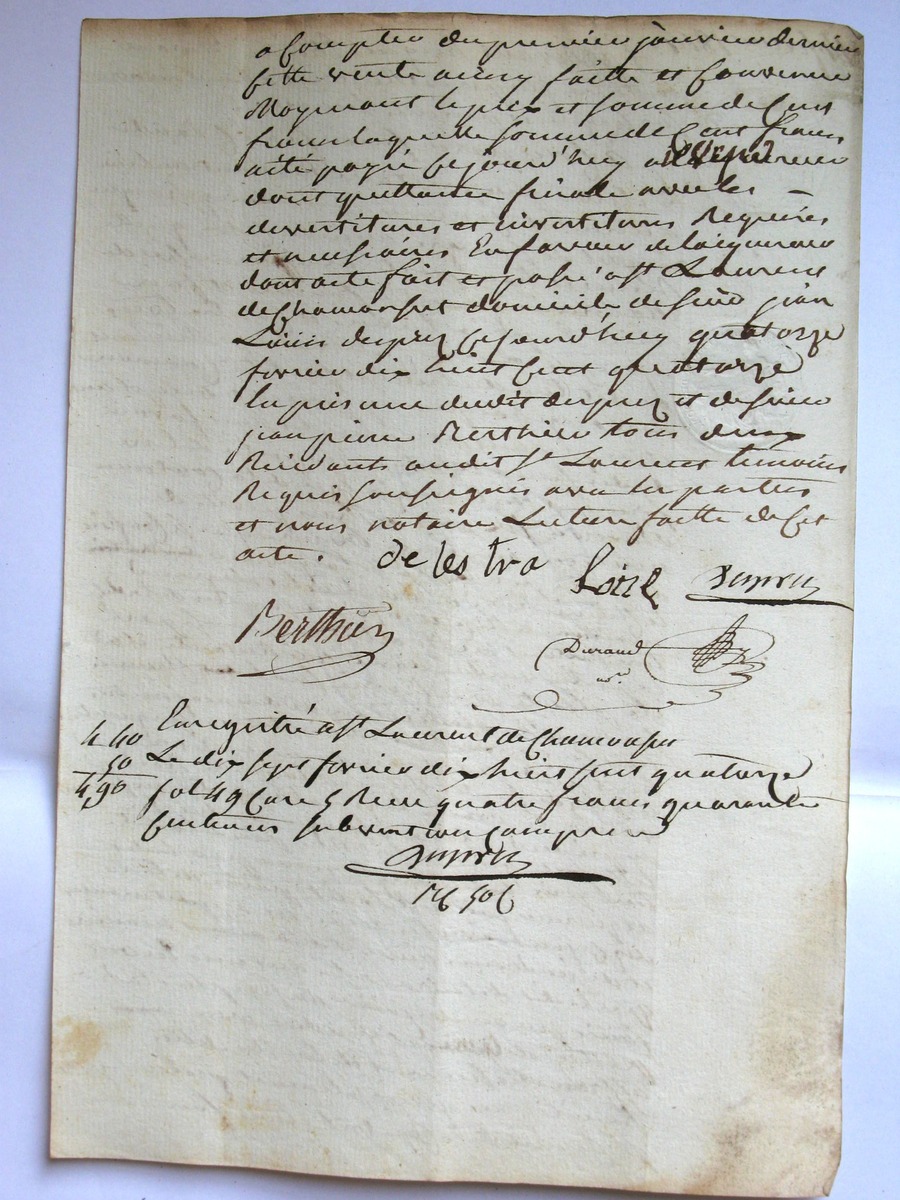 a Compter du premier janvier dernier
Cette vente ainsy faitte et Convenue
Moyenant le prix et somme de Cent
francs laquelle somme de Cent francs
a été payée ce jourd'huy
dont quittance finale avec les –
devestitures et investitures Requises
et necessaires En faveur de lacquereur
dont acte fait et passé a St Laurent
de Chamousset domicile de sieur jean
Louis duprez Cejourd'huy quatorze
fevrier dix huit Cent quatorze
En presence dudit duprez et de sieur
jean pierre Berthier tous deux
Residants audit St Laurent temoins
Requis soussignés avec les parties
et nous notaire Lecture faitte de Cet
acte. de les tra
Loire Duprez
Berthier
Durand
nore
Enregistré a St Laurent de Chamousset
4 40 Le dix sept fevrier dix huit cent quatorze
50 fol 49 Case 5 Reçu quatre francs quarante
4 90 Centimes subvention comprise
Duprez